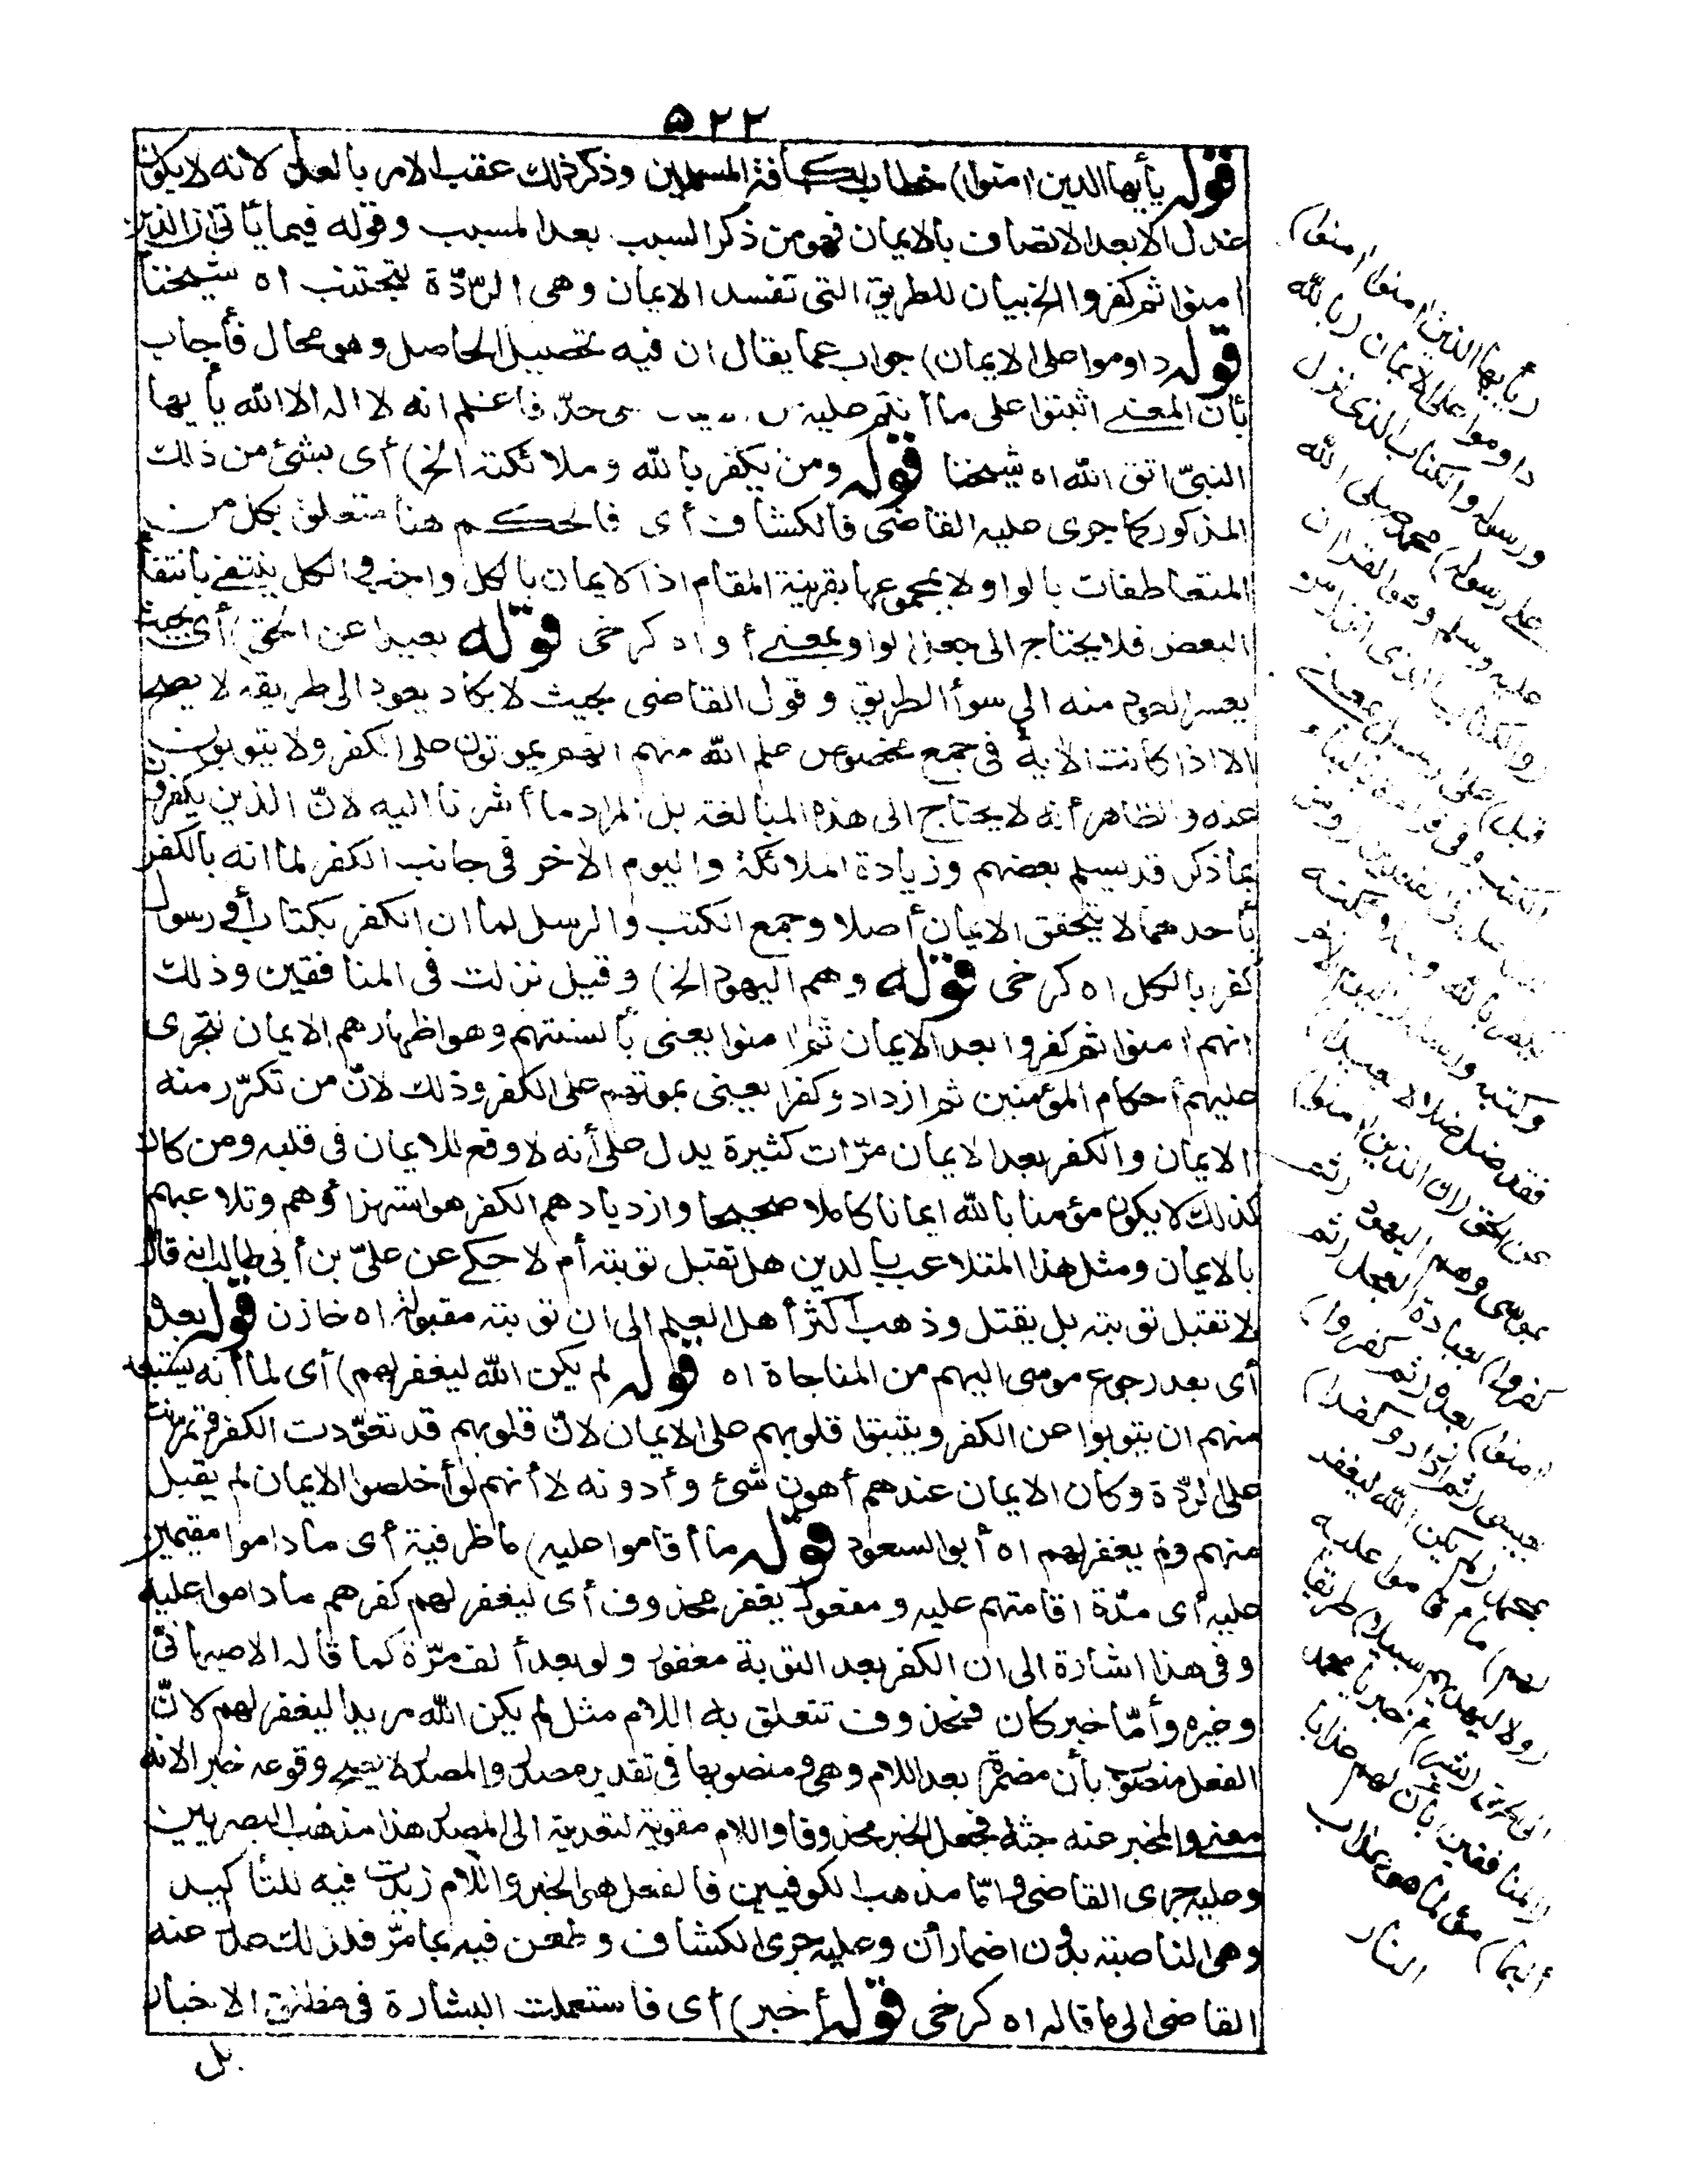 ٥٢٢
قوله يأيها الذين امنوا) خطاب لكافة المسلمين وذكر ذلك عقب الامر بالعدل لانه لا يكون
عدل الا بعد الاتصاف بالايمان فهو من ذكر السبب بعد المسبب وقوله فيما يأتى ان الذين
امنوا ثم كفروا الخ بيان للطريق التى تفسد الايمان وهى الردّة لتجتنب اه شيخنا
قوله داوموا على الايمان) جواب عما يقال ان فيه تحصيل الحاصل وهو محال فأجاب
بأن المعنى اثبتوا على ما أنتم عليه حدّ فاعلم انه لا اله الا الله يأيها
النبىّ اتق الله اه شيخنا قوله ومن يكفر بالله وملائكته الخ) أى بشئ من ذلك
المذكور كما جرى عليه القاضى فالكشاف أى فالحكم هنا متعلق بكل من
المتعاطفات بالواو لا بمجموعها بقرينة المقام اذ الايمان بالكل واجب والكل ينتفى بانتفاء
البعض فلا يحتاج الى جعل الواو بمعنى أو اه كرخى قوله بعيدا عن الحق) أى بحيث
يعسر العود منه الى سوأ الطريق وقول القاضى بحيث لا يكاد يعود الى طريقه لا يصح
الا اذا كانت الاية فى جمع مخصوص علم الله منهم انهم يموتون على الكفر ولا يتوبون
عنه والظاهر أنه لا يحتاج الى هذه المبالغة بل المراد ما أشرنا اليه لانّ الذين يكفرون
بما ذكر قد يسلم بعضهم وزيادة الملائكة واليوم الاخر فى جانب الكفر لما انه بالكفر
بأحدهما لا يتحقق الايمان أصلا وجمع الكتب والرسل لما ان الكفر بكتاب أو رسول
كفر بالكل اه كرخى قوله وهم اليهود الخ) وقيل نزلت فى المنافقين وذلك
انهم امنوا ثم كفروا بعد الايمان ثم امنوا يعنى بألسنتهم وهو اظهارهم الايمان لتجرى
عليهم أحكام المؤمنين ثم ازدادوا كفرا يعنى بموتهم على الكفر وذلك لانّ من تكرّر منه
الايمان والكفر بعد الايمان مرّات كثيرة يدل على أنه لا وقع للايمان فى قلبه ومن كان
كذلك لا يكون مؤمنا بالله ايمانا كاملا صحيحا وازديادهم الكفر هو استهزاؤهم وتلاعبهم
بالايمان ومثل هذا المتلاعب بالدين هل تقبل توبته أم لا حكى عن علىّ بن أبى طالب انه قال
لا تقبل توبته بل يقتل وذهب أكثر أهل العلم الى ان توبته مقبولة اه خازن قوله بعده
أى بعد رجوع موسى اليهم من المناجاة اه قوله لم يكن الله ليغفر لهم) أى لما أنه يستبعد
منهم ان يتوبوا عن الكفر ويثبتوا قلوبهم على الايمان لانّ قلوبهم قد تعوّدت الكفر وتمرنت
على الردّة وكان الايمان عندهم أهون شئ وأدونه لا أنهم لو أخلصوا الايمان لم يقبل
منهم ولم يغفر لهم اه أبو السعود قوله ما أقاموا عليه) ما ظرفية أى ما داموا مقيمين
عليه أى مدّة اقامتهم عليه ومفعول يغفر محذوف أى ليغفر لهم كفرهم ما داموا عليه
وفى هذا اشارة الى ان الكفر بعد التوبة مغفور ولو بعد ألف مرّة كما قاله الاصبهانى
وغيره وأمّا خبر كان فمحذوف تتعلق به اللام مثل لم يكن الله مريدا ليغفر لهم لانّ
الفعل منصوب بأن مضمرة بعد اللام وهى ومنصوبها فى تقدير مصدر والمصدر لا يصح وقوعه خبرا لانه
معنى والمخبر عنه جثة فجعل الخبر محذوفا واللام مقوية لتعديته الى المصدر هذا مذهب البصريين
وعليه جرى القاضى وامّا مذهب الكوفيين فالفعل هو الخبر واللام زيدت فيه للتأكيد
وهى الناصبة بدون اضمار أن وعليه جرى الكشاف وطعن فيه بما مرّ فلذلك عدل عنه
القاضى الى ما قاله اه كرخى قوله أخبر) أى فاستعملت البشارة فى مطلق الاخبار
بل
(يأيها الذين امنوا امنوا)
داوموا على الايمان (بالله
ورسوله والكتاب الذى نزل
على رسوله) محمد صلى الله
عليه وسلم وهو القران
(والكتاب الذى أنزل من
قبل) على الرسل بمعنى
الكتب وفى قراءة بالبناء
(ومن
يكفر بالله وملائكته
وكتبه ورسله واليوم الاخر
فقد ضل ضلالا بعيدا)
عن الحق (ان الذين امنوا)
بموسى وهم اليهود (ثم
كفروا) بعبادة العجل (ثم
امنوا) بعده (ثم كفروا)
بعيسى (ثم ازدادوا كفرا)
بمحمد (لم يكن الله ليغفر
لهم) ما أقاموا عليه
(ولا ليهديهم سبيلا) طريقا
الى الحق (بشر) أخبر يا محمد
(المنافقين بأن لهم عذابا
أليما) مؤلما هو عذاب
النار